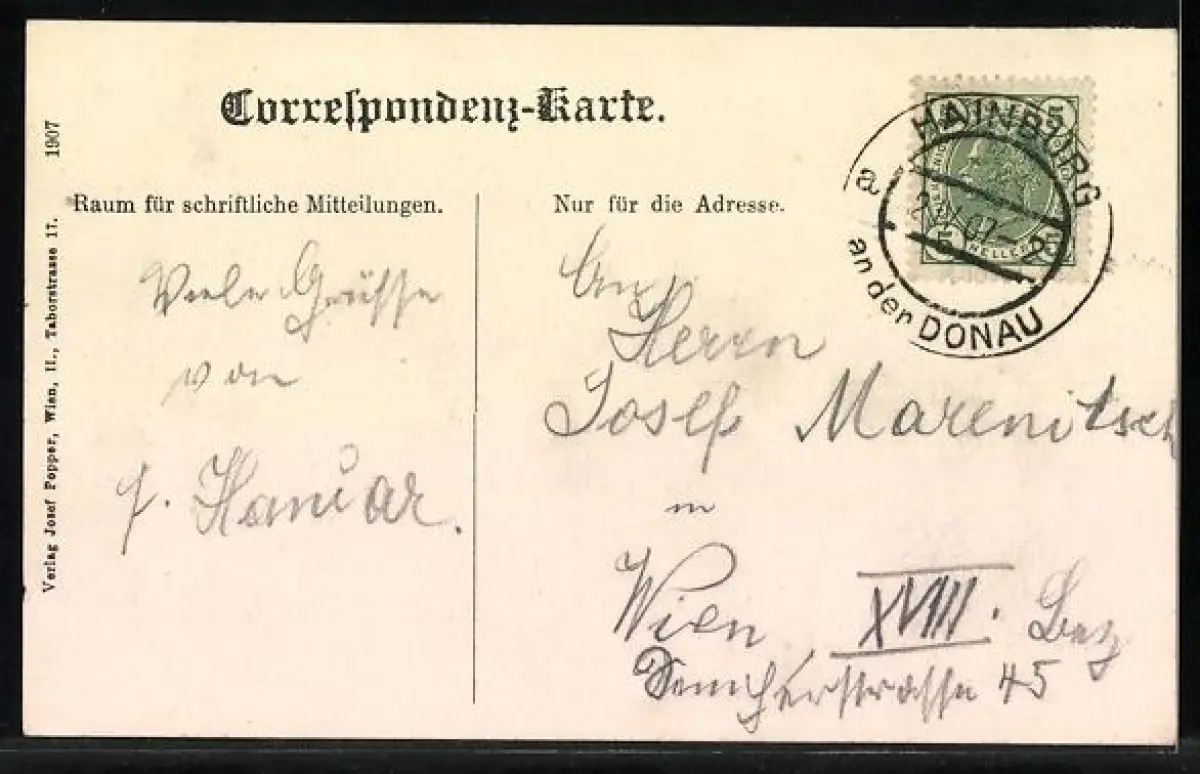 Correspondenz-Karte.
Raum für schriftliche Mitteilungen.
Nur für die Adresse.
Viele Grüsse
von
f. Hanuar.
An
Herrn
Josef Marenitsch
in
Wien XVIII. Bez
45
HAINBURG
a.
an der DONAU
07
5 5
HELLER
5 5
1907
Verlag Josef Popper, Wien, II., Taborstrasse 17.